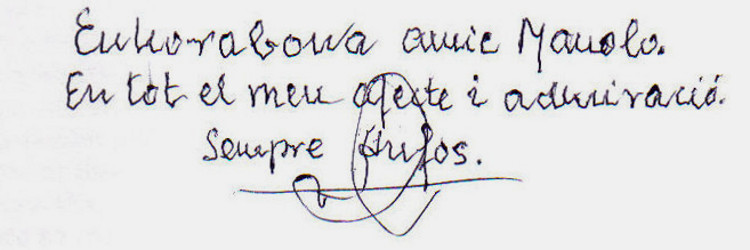 Enhorabona amic Manolo.
En tot el meu afecte i admiració.
Sempre